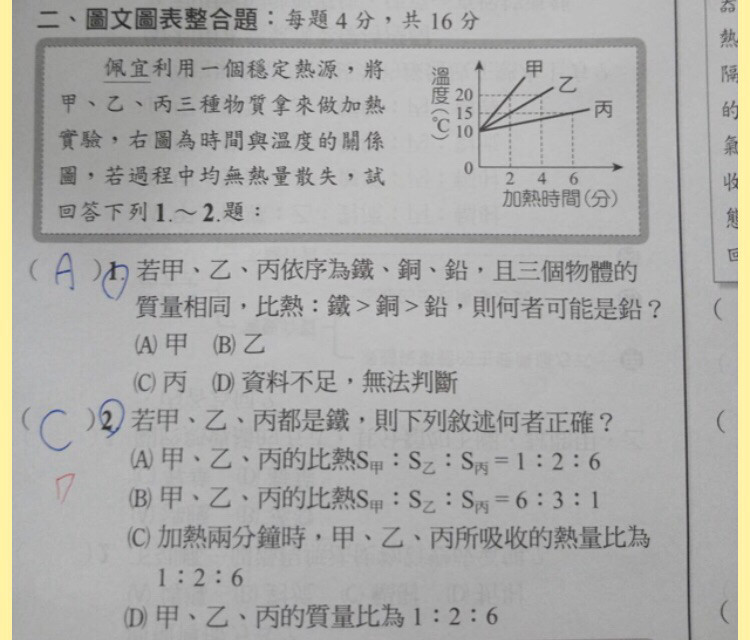 二、圖文圖表整合題：每題 4 分，共 16 分
佩宜利用一個穩定熱源，將
甲、乙、丙三種物質拿來做加熱
實驗，右圖為時間與溫度的關係
圖，若過程中均無熱量散失，試
回答下列 1.～2.題：
溫度(℃)
20
15
10
0
甲
乙
丙
2 4 6
加熱時間(分)
( A ) 1. 若甲、乙、丙依序為鐵、銅、鉛，且三個物體的
質量相同，比熱：鐵＞銅＞鉛，則何者可能是鉛？
(A) 甲 (B) 乙
(C) 丙 (D) 資料不足，無法判斷
( C ) 2. 若甲、乙、丙都是鐵，則下列敘述何者正確？
D
(A) 甲、乙、丙的比熱S甲：S乙：S丙＝1：2：6
(B) 甲、乙、丙的比熱S甲：S乙：S丙＝6：3：1
(C) 加熱兩分鐘時，甲、乙、丙所吸收的熱量比為
1：2：6
(D) 甲、乙、丙的質量比為 1：2：6
器
熱
隔
的
氣
收
態
回
(
(
(
(